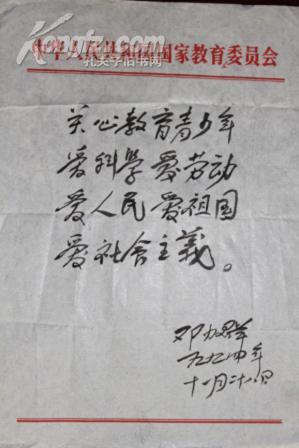 中华人民共和国国家教育委员会
孔夫子旧书网
关心教育青少年
爱科学爱劳动
爱人民爱祖国
爱社会主義。
邓力群
九四年
十一月二十八日